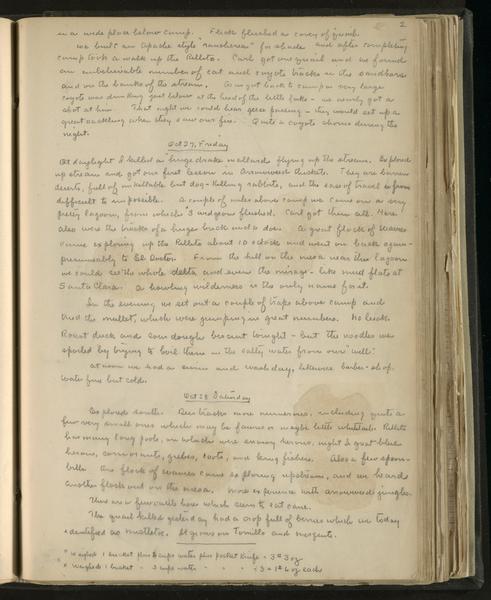 2
in a wide place below camp. Flick flushed a covey of quail.
We built an Apache style "rancheria" for shade and after completing
camp took a walk up the Rillito. Carl got one quail and we found
an unbelievable number of cat and coyote tracks in the sandbars
and on the banks of the stream. As we got back to camp a very large
coyote was drinking just below at the head of the little lake - we nearly got a
shot at him. That night we could hear geese passing - they would set up a
great cackling when they saw our fire. Quite a coyote chorus during the
night.
Oct 27, Friday
At daylight I killed a huge drake mallard flying up the stream. Explored
up stream and got our first lesson in Arrowweed thickets. They are barren
deserts, full of unkillable but dog-killing rabbits, and the ease of travel is from
difficult to impossible. A couple of miles above camp we came on a very
pretty lagoon, from which 3 widgeon flushed. Carl got them all. Here
also were the tracks of a huge buck and a doe. A great flock of
came exploring up the Rillito about 10 oclock and went on back again -
presumably to El Doctor. From the hill on the mesa near this lagoon
we could see the whole delta and even the mirage-like mud flats at
Santa Clara. A howling wilderness is the only name for it.
In the evening we set out a couple of traps above camp and
tried the mullet, which were jumping in great numbers. No luck.
Roast duck and sour dough biscuit tonight - but the noodles were
spoiled by trying to boil them in the salty water from our "well."
At noon we had a swim and wash day, likewise barber-shop.
Water fine but cold.
Oct 28 Saturday
Explored south. Deer tracks more numerous, including quite a
few very small ones which may be fawns or maybe little whitetails. Rillito
has many long pools, on which were snowy herons, night & great blue
herons, cormorants, grebes, coots, and king fishers. Also a few spoon-
bills. One flock of came exploring upstream, and we heard
another flock out on the mesa. More experience with arrowweed jungles.
There are a few cattle here which seem to eat cane.
The quail killed yesterday had a crop full of berries which we today
identified as mistletoe. It grows on Tornillo and mesquite.
* Weighed 1 bucket plus 2 cups water plus pocket knife = 3# 3 oz
* Weighed 1 bucket - 3 cups water " " " = 3 = 1# 6 oz each